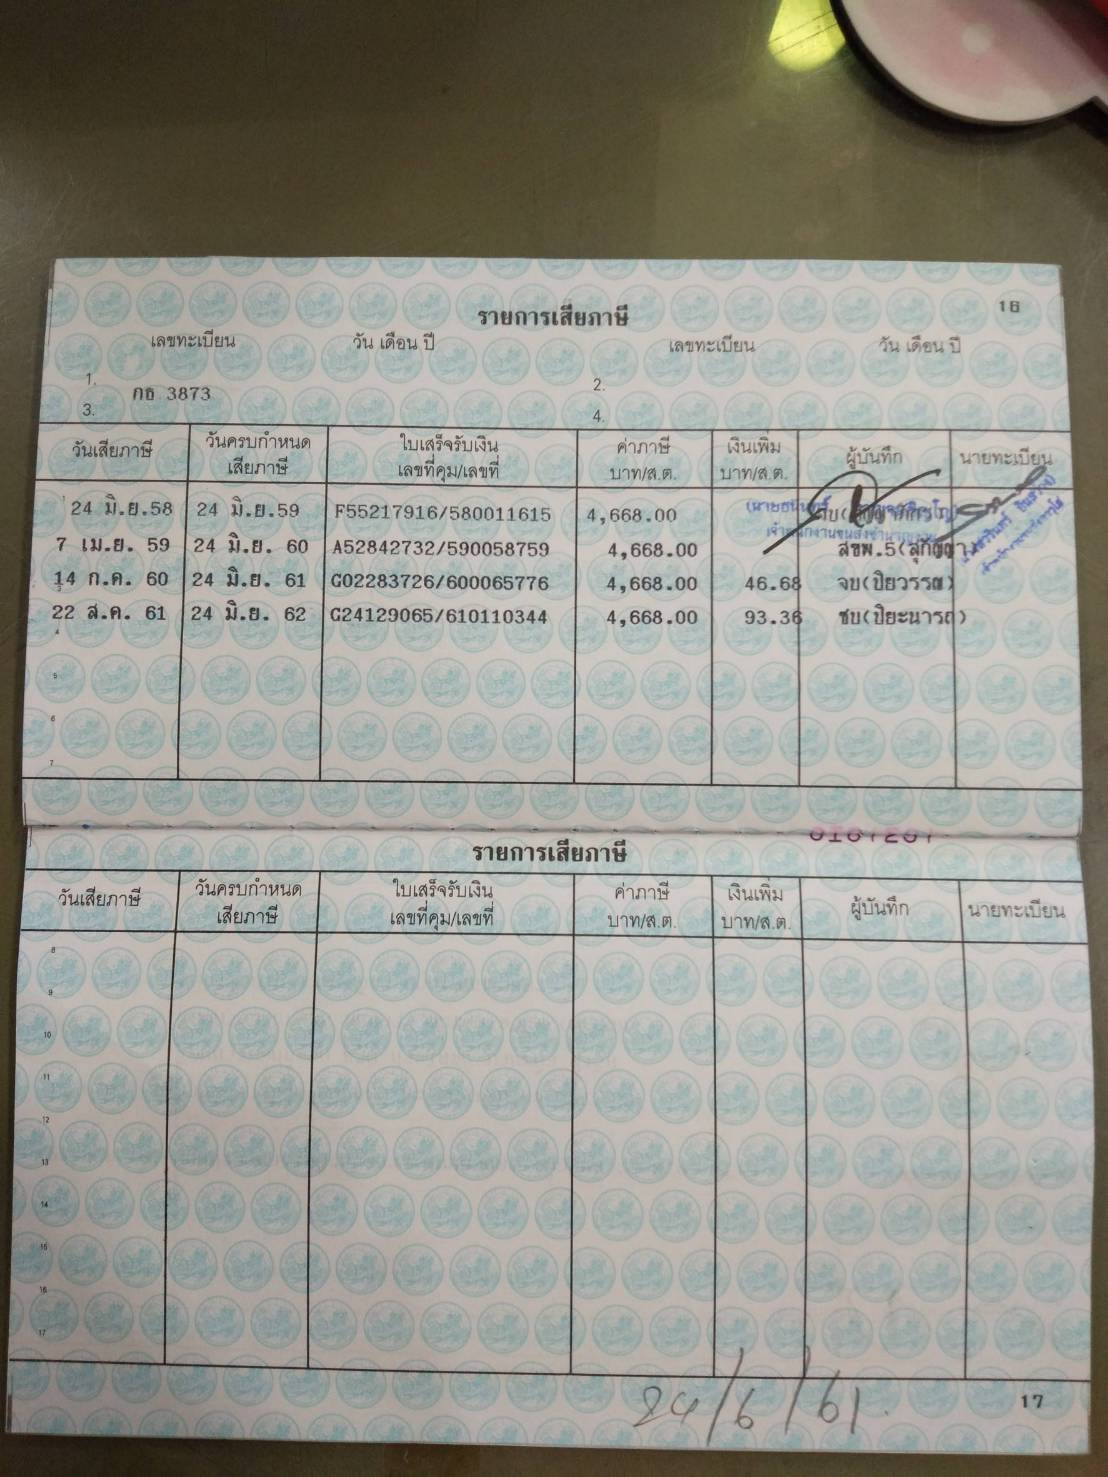 16
รายการเสียภาษี
เลขทะเบียน วัน เดือน ปี เลขทะเบียน วัน เดือน ปี
1. 2.
กธ 3873
3. 4.
วันเสียภาษี วันครบกำหนด เสียภาษี ใบเสร็จรับเงิน เลขที่คุม/เลขที่ ค่าภาษี บาท/ส.ต. เงินเพิ่ม บาท/ส.ต. ผู้บันทึก นายทะเบียน
24 มิ.ย.58 24 มิ.ย.59 F55217916/580011615 4,668.00
7 เม.ย. 59 24 มิ.ย. 60 A52842732/590058759 4,668.00 สขพ.5(สุกัญญา
14 ก.ค. 60 24 มิ.ย. 61 G02283726/600065776 4,668.00 46.68 จบ(ปิยวรรณ)
22 ส.ค. 61 24 มิ.ย. 62 G24129065/610110344 4,668.00 93.36 ชบ(ปิยะนารถ)
3
4
5
6
7
รายการเสียภาษี
วันเสียภาษี วันครบกำหนด เสียภาษี ใบเสร็จรับเงิน เลขที่คุม/เลขที่ ค่าภาษี บาท/ส.ต. เงินเพิ่ม บาท/ส.ต. ผู้บันทึก นายทะเบียน
8
9
10
11
12
13
14
15
16
17
24/6/61
17